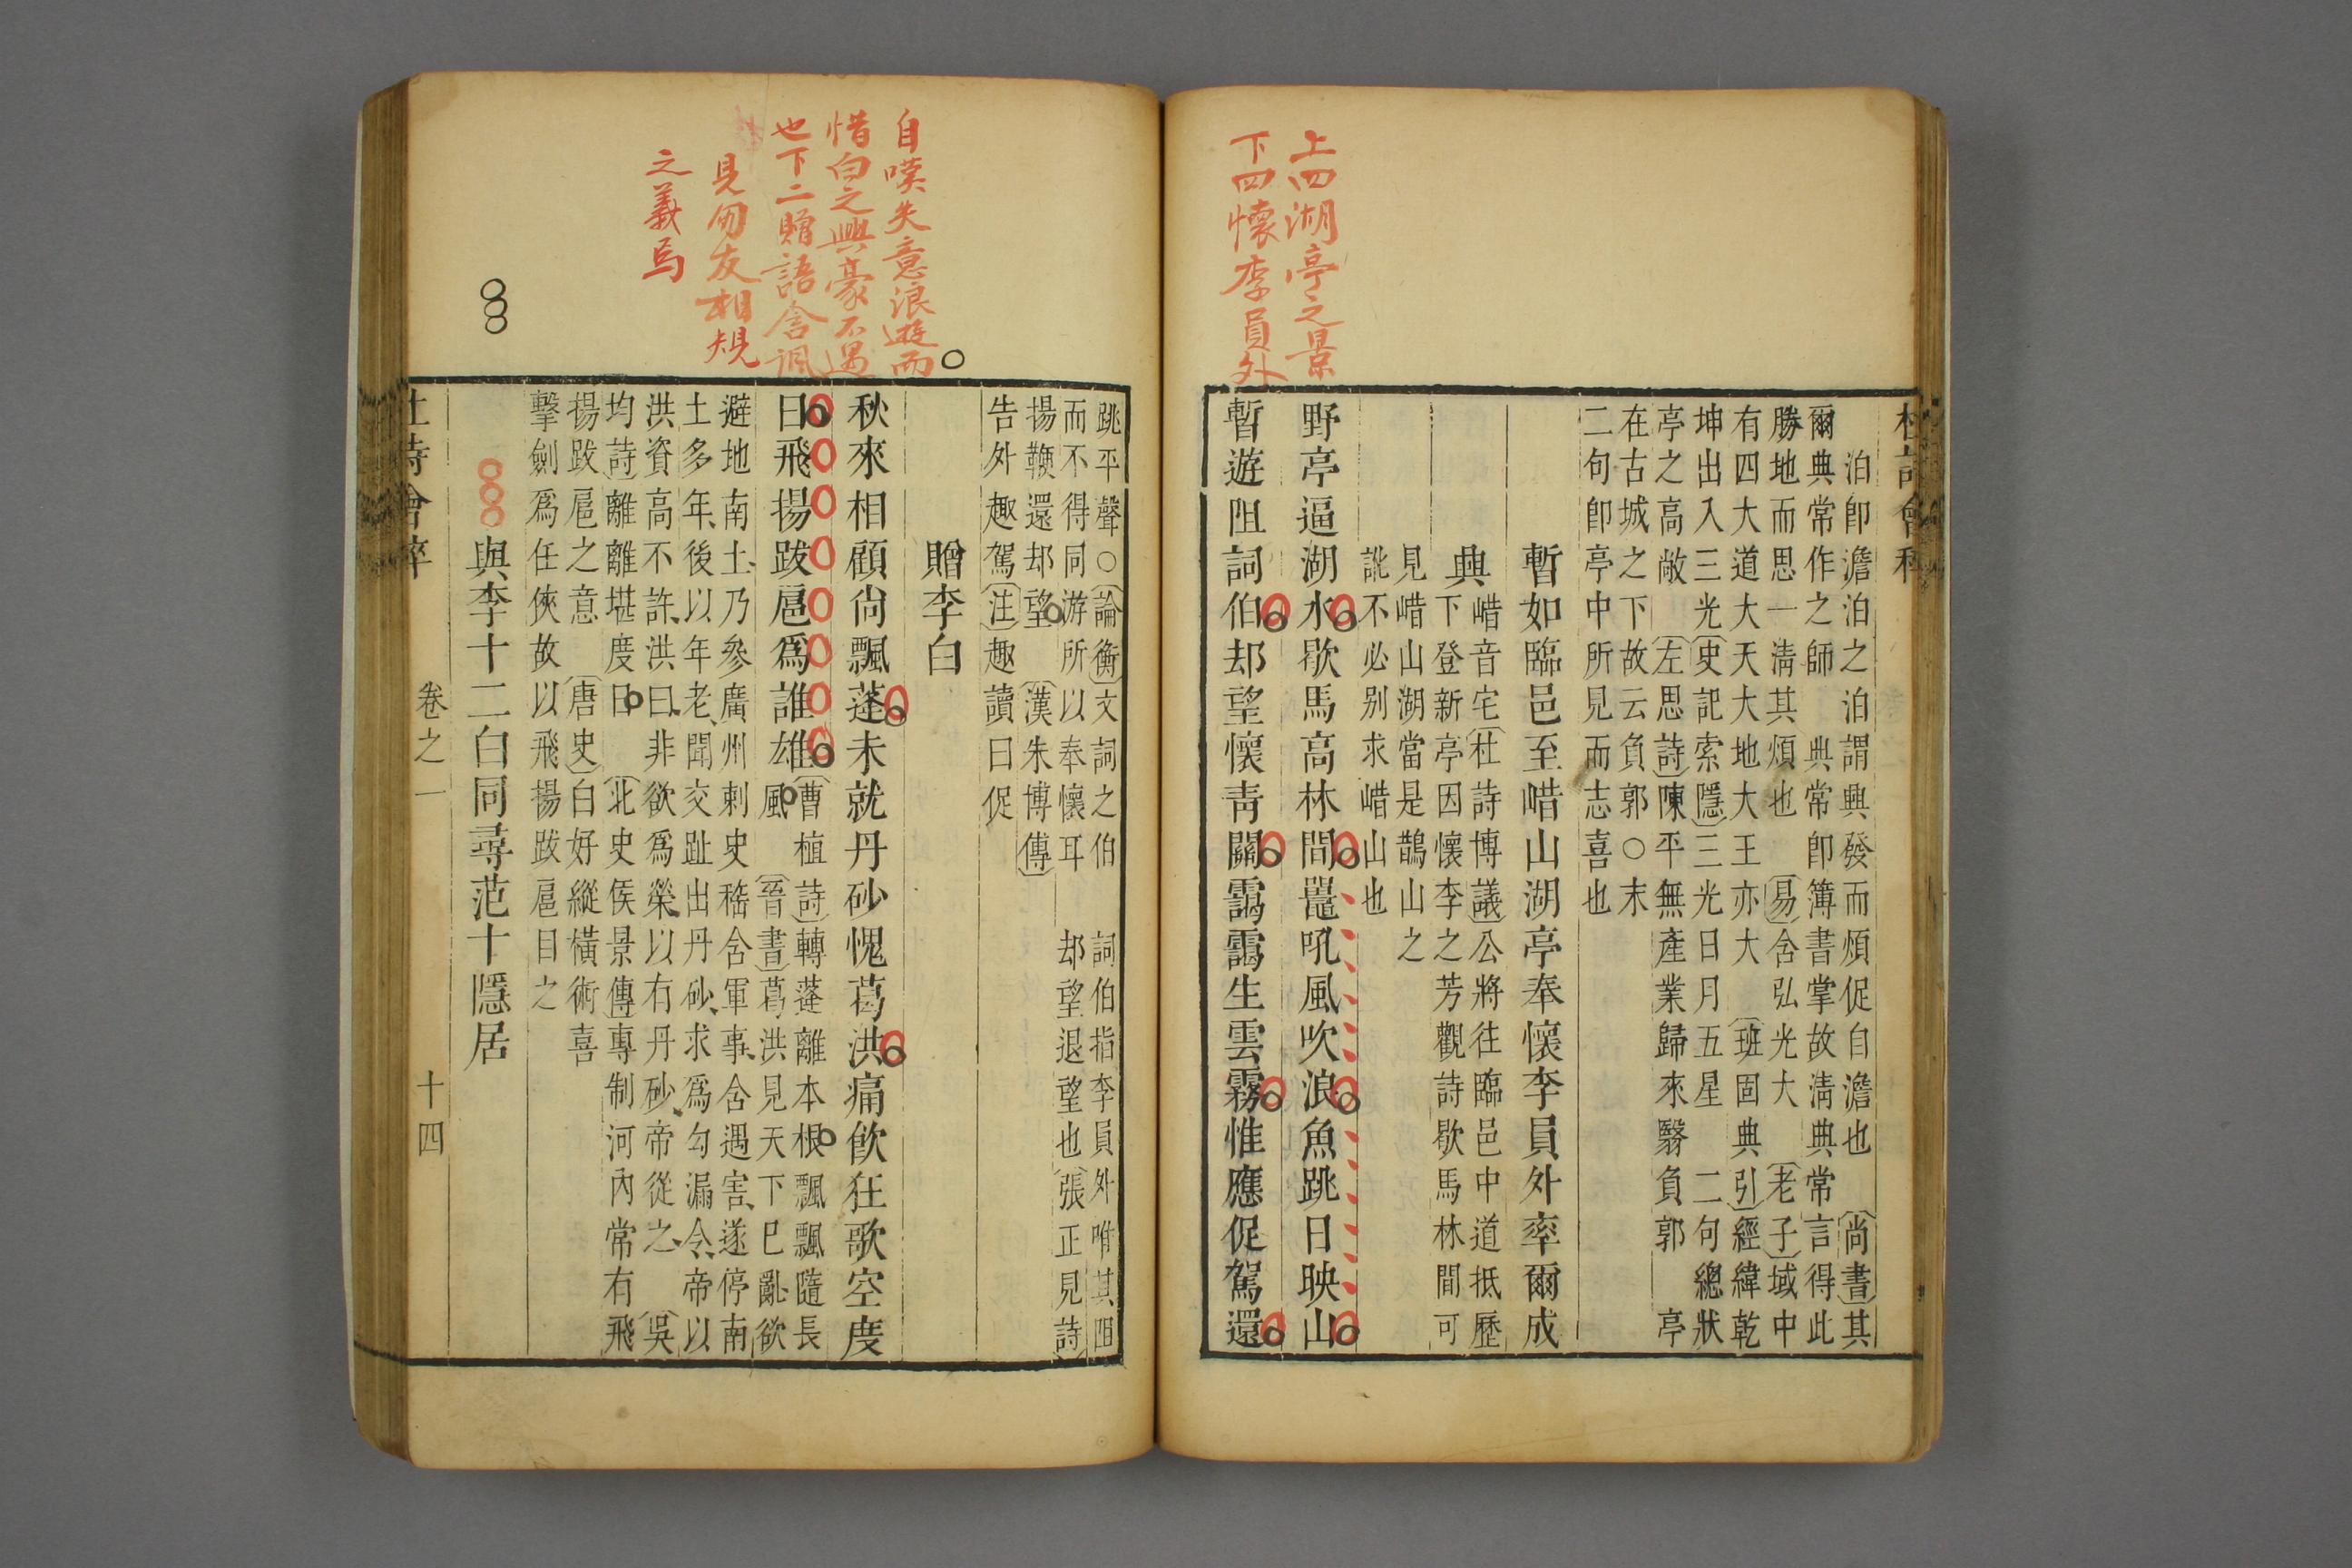 上四湖亭之景
下四懷李員外
杜詩會稡
泊卽澹泊之泊謂興發而煩促自澹也　尚書其
爾典常作之師　典常卽簿書掌故淸典常言得此
勝地而思一淸其煩也　易含弘光大　老子域中
有四大道大天大地大王亦大　班固典引經緯乾
坤出入三光史記索隱三光日月五星　二句總狀
亭之高敞　左思詩陳平無產業歸來翳負郭　亭
在古城之下故云負郭○末
二句卽亭中所見而志喜也
暫如臨邑至㟙山湖亭奉懷李員外率爾成
興
㟙音宅杜詩博議公將往臨邑中道抵歷
下登新亭因懷李之芳觀詩歇馬林間可
見㟙山湖當是鵲山之
訛不必別求㟙山也
野亭逼湖水歇馬高林間鼉吼風吹浪魚跳日映山
暫遊阻詞伯却望懷靑關靄靄生雲霧惟應促駕還
自嘆失意浪遊而
惜白之興豪不遇
也下二贈語含諷
見朋友相規
之義焉
跳平聲○論衡文詞之伯　詞伯指李員外唯其阻
而不得同游所以奉懷耳　却望退望也張正見詩
揚鞭還却望　漢朱博傳
告外趣駕注趣讀曰促
贈李白
秋來相顧尙飄蓬未就丹砂愧葛洪痛飮狂歌空度
日飛揚跋扈爲誰雄
曹植詩轉蓬離本根飄飄隨長
風　晉書葛洪見天下已亂欲
避地南土乃參廣州刺史嵇含軍事含遇害遂停南
土多年後以年老聞交趾出丹砂求爲勾漏令帝以
洪資高不許洪曰非欲爲榮以有丹砂帝從之　吳
均詩離離堪度日　北史侯景傳專制河內常有飛
揚跋扈之意　唐史白好縱橫術喜
擊劍爲任俠故以飛揚跋扈目之
與李十二白同尋范十隱居
杜詩會稡　卷之一　十四